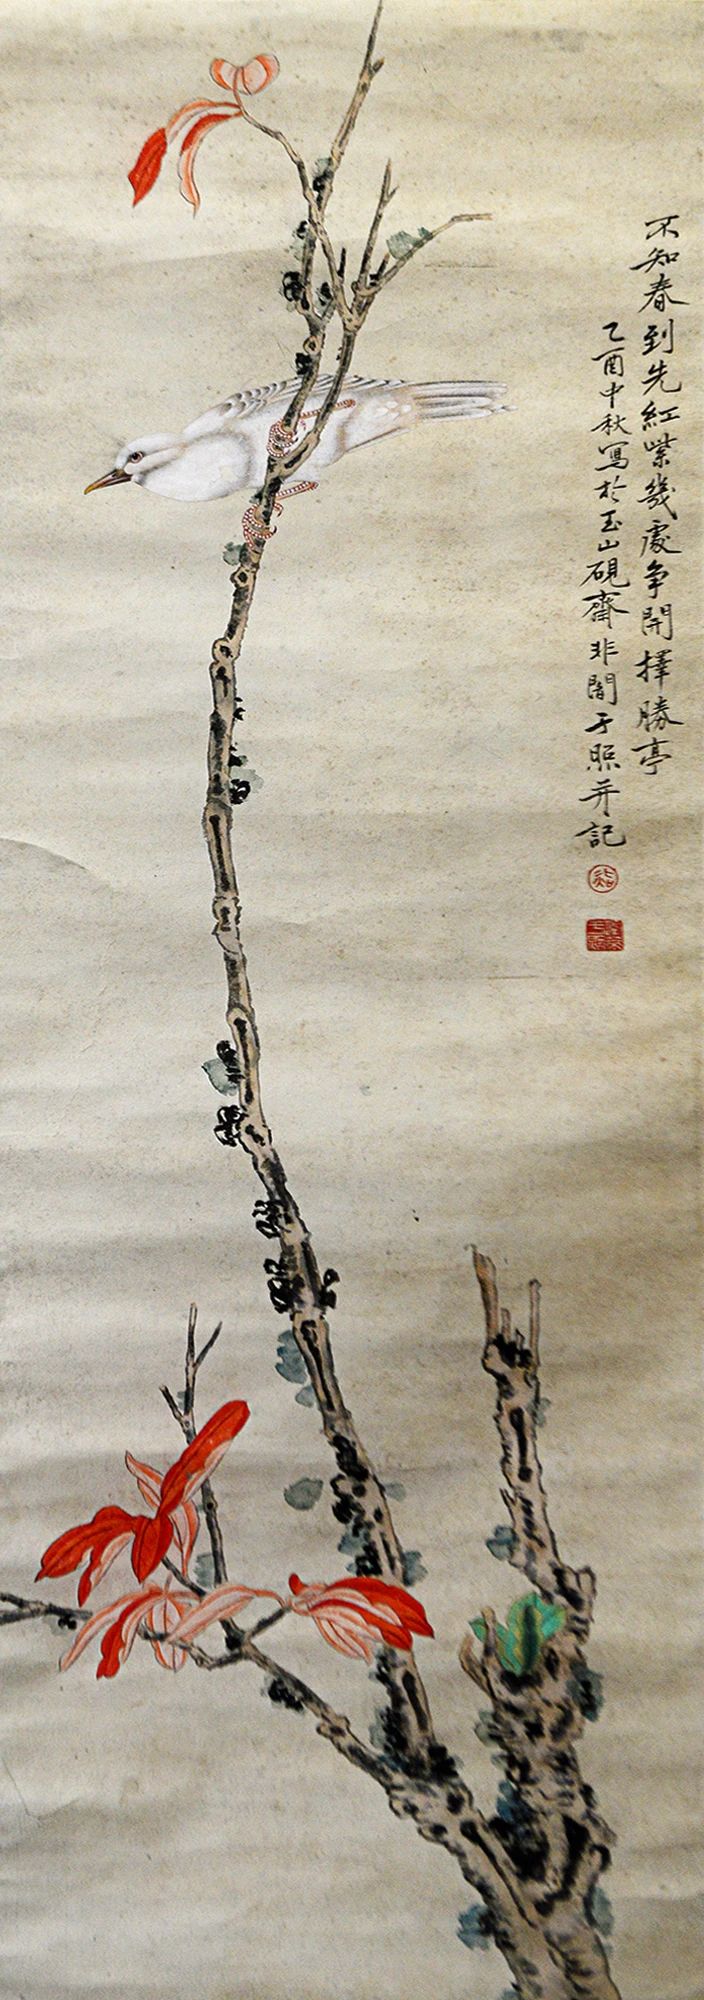 不知春到先紅紫幾處争開擇勝亭
乙酉中秋寫於玉山硯齋非闇于照并記